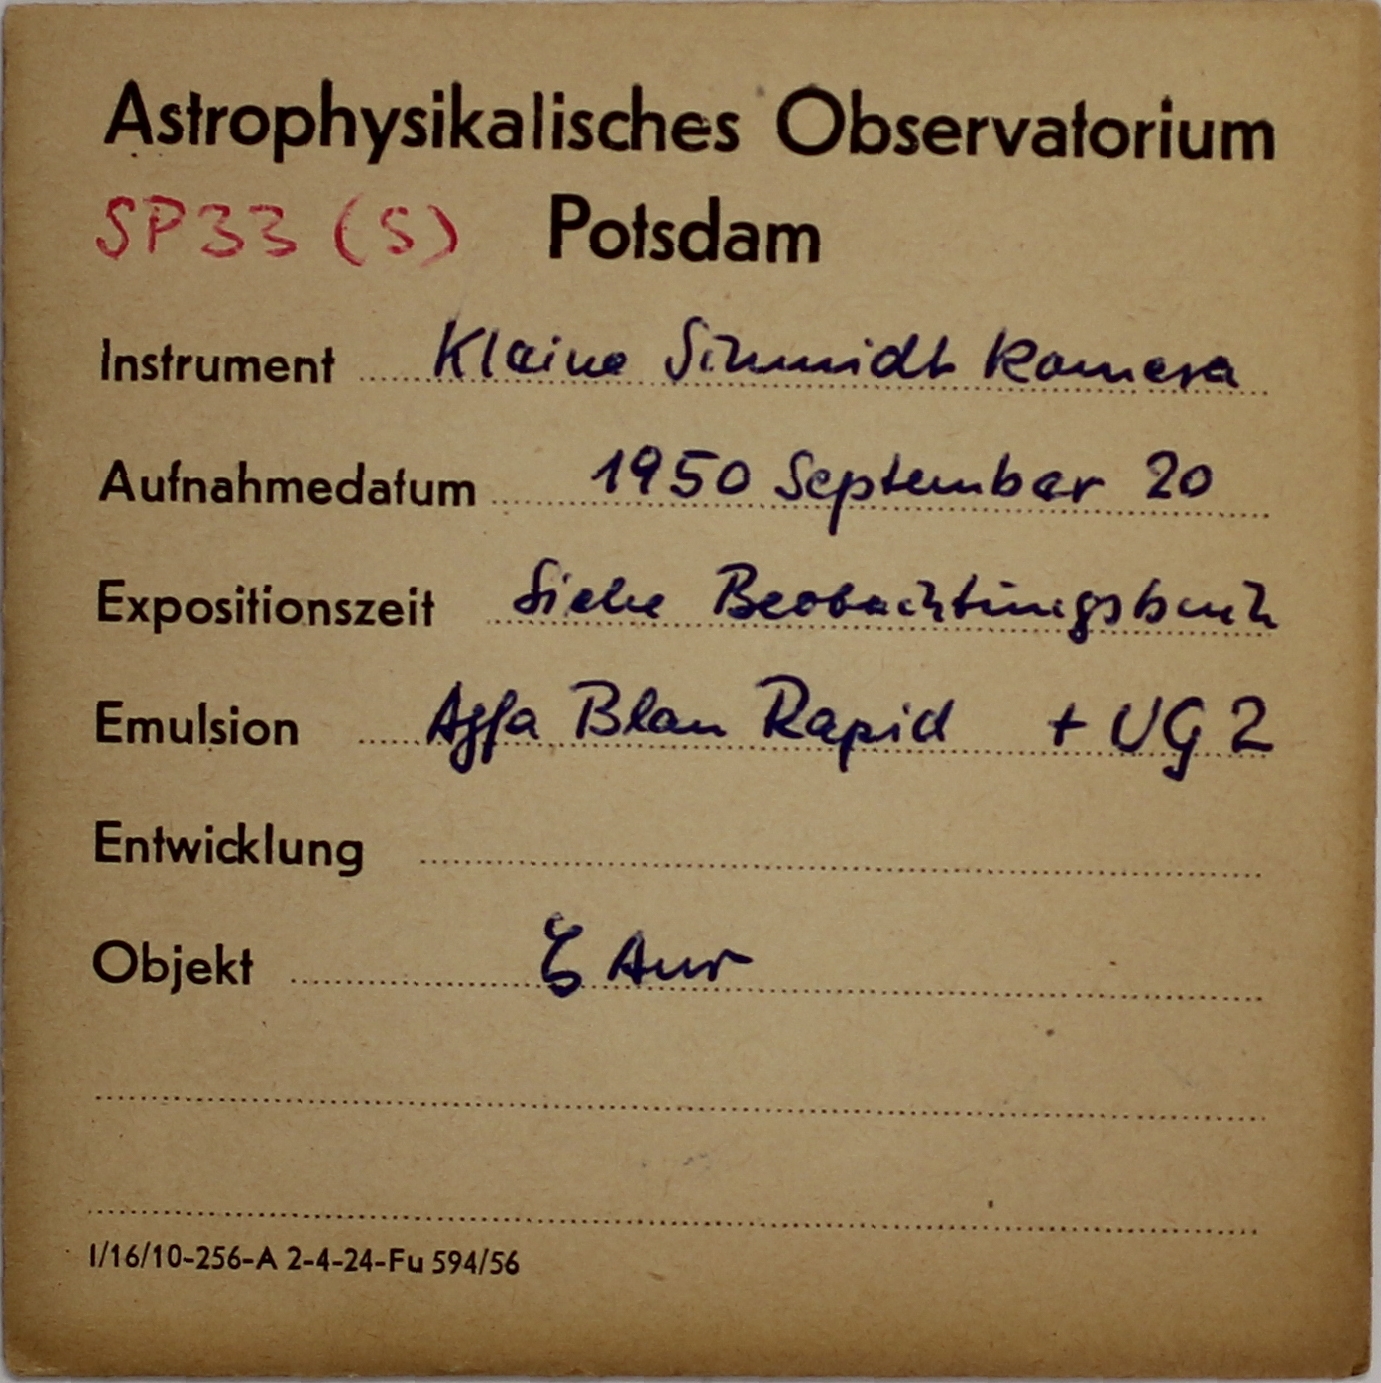 Astrophysikalisches Observatorium
SP33 (S) Potsdam
Instrument Kleine Schmidt Kamera
Aufnahmedatum 1950 September 20
Expositionszeit Siehe Beobachtungsbuch
Emulsion Agfa Blau Rapid + UG 2
Entwicklung
Objekt ζ Aur
I/16/10-256-A 2-4-24-Fu 594/56